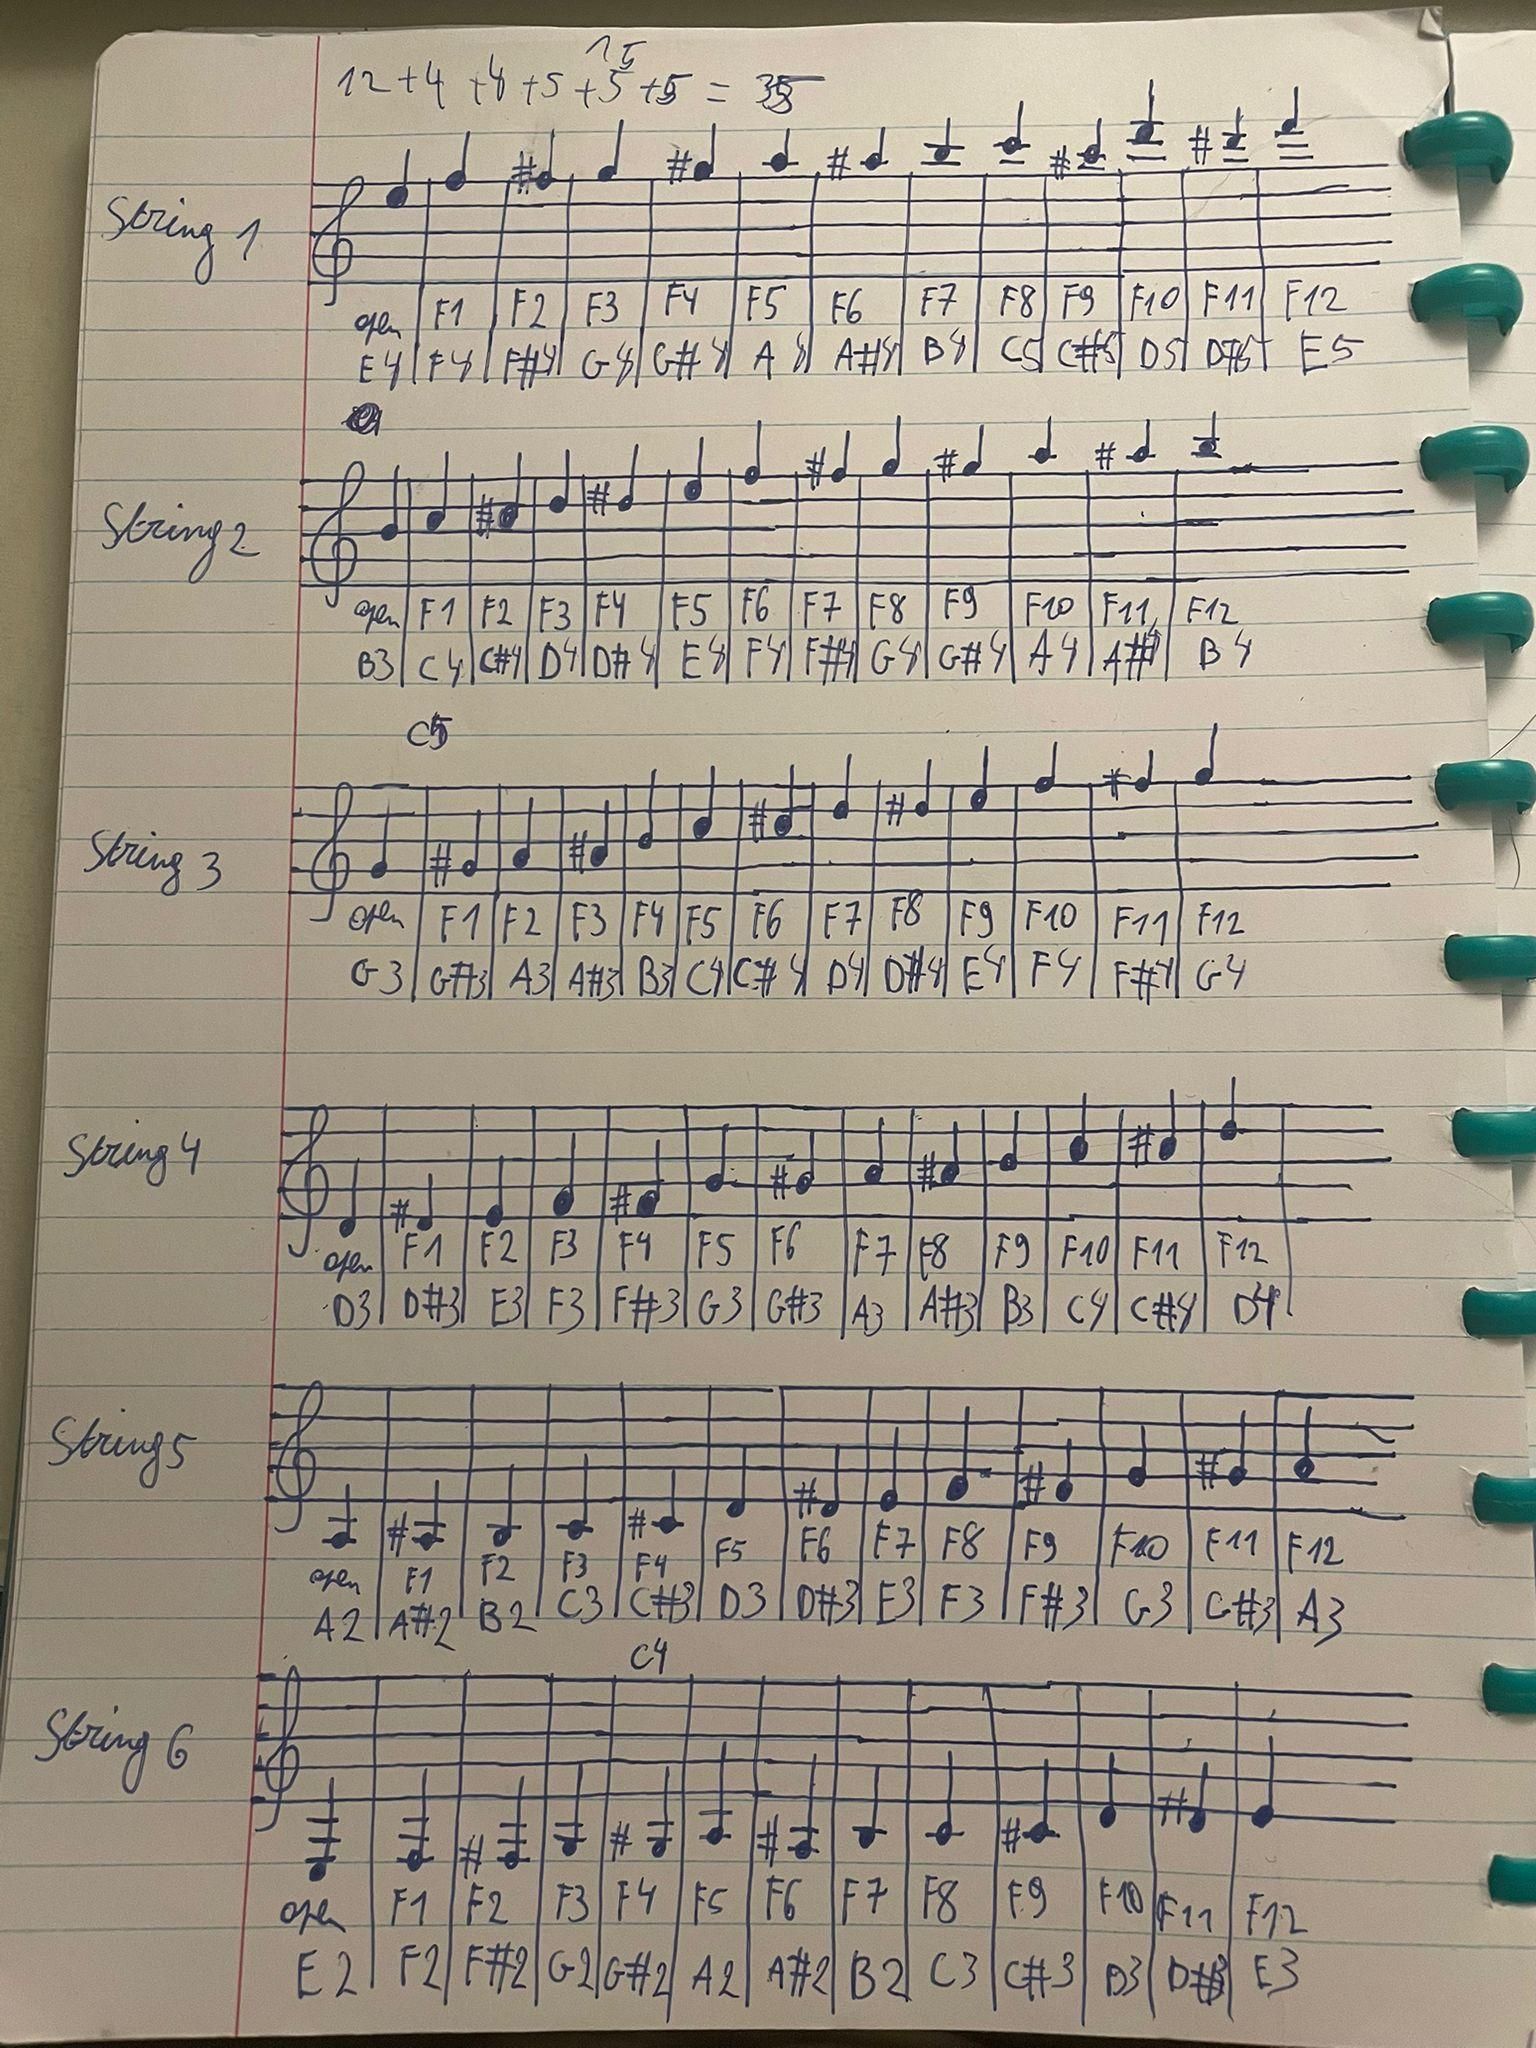 12 + 4 + 4 + 5 + 5 + 5 =
String 1
open F1 F2 F3 F4 F5 F6 F7 F8 F9 F10 F11 F12
E4 F4 F#4 G4 G#4 A4 A#4 B4 C5 C#5 D5 D#5 E5
String 2
open F1 F2 F3 F4 F5 F6 F7 F8 F9 F10 F11 F12
B3 C4 C#4 D4 D#4 E4 F4 F#4 G4 G#4 A4 A#4 B4
C5
String 3
open F1 F2 F3 F4 F5 F6 F7 F8 F9 F10 F11 F12
G3 G#3 A3 A#3 B3 C4 C#4 D4 D#4 E4 F4 F#4 G4
String 4
open F1 F2 F3 F4 F5 F6 F7 F8 F9 F10 F11 F12
D3 D#3 E3 F3 F#3 G3 G#3 A3 A#3 B3 C4 C#4 D4
String 5
open F1 F2 F3 F4 F5 F6 F7 F8 F9 F10 F11 F12
A2 A#2 B2 C3 C#3 D3 D#3 E3 F3 F#3 G3 G#3 A3
C4
String 6
open F1 F2 F3 F4 F5 F6 F7 F8 F9 F10 F11 F12
E2 F2 F#2 G2 G#2 A2 A#2 B2 C3 C#3 D3 D#3 E3